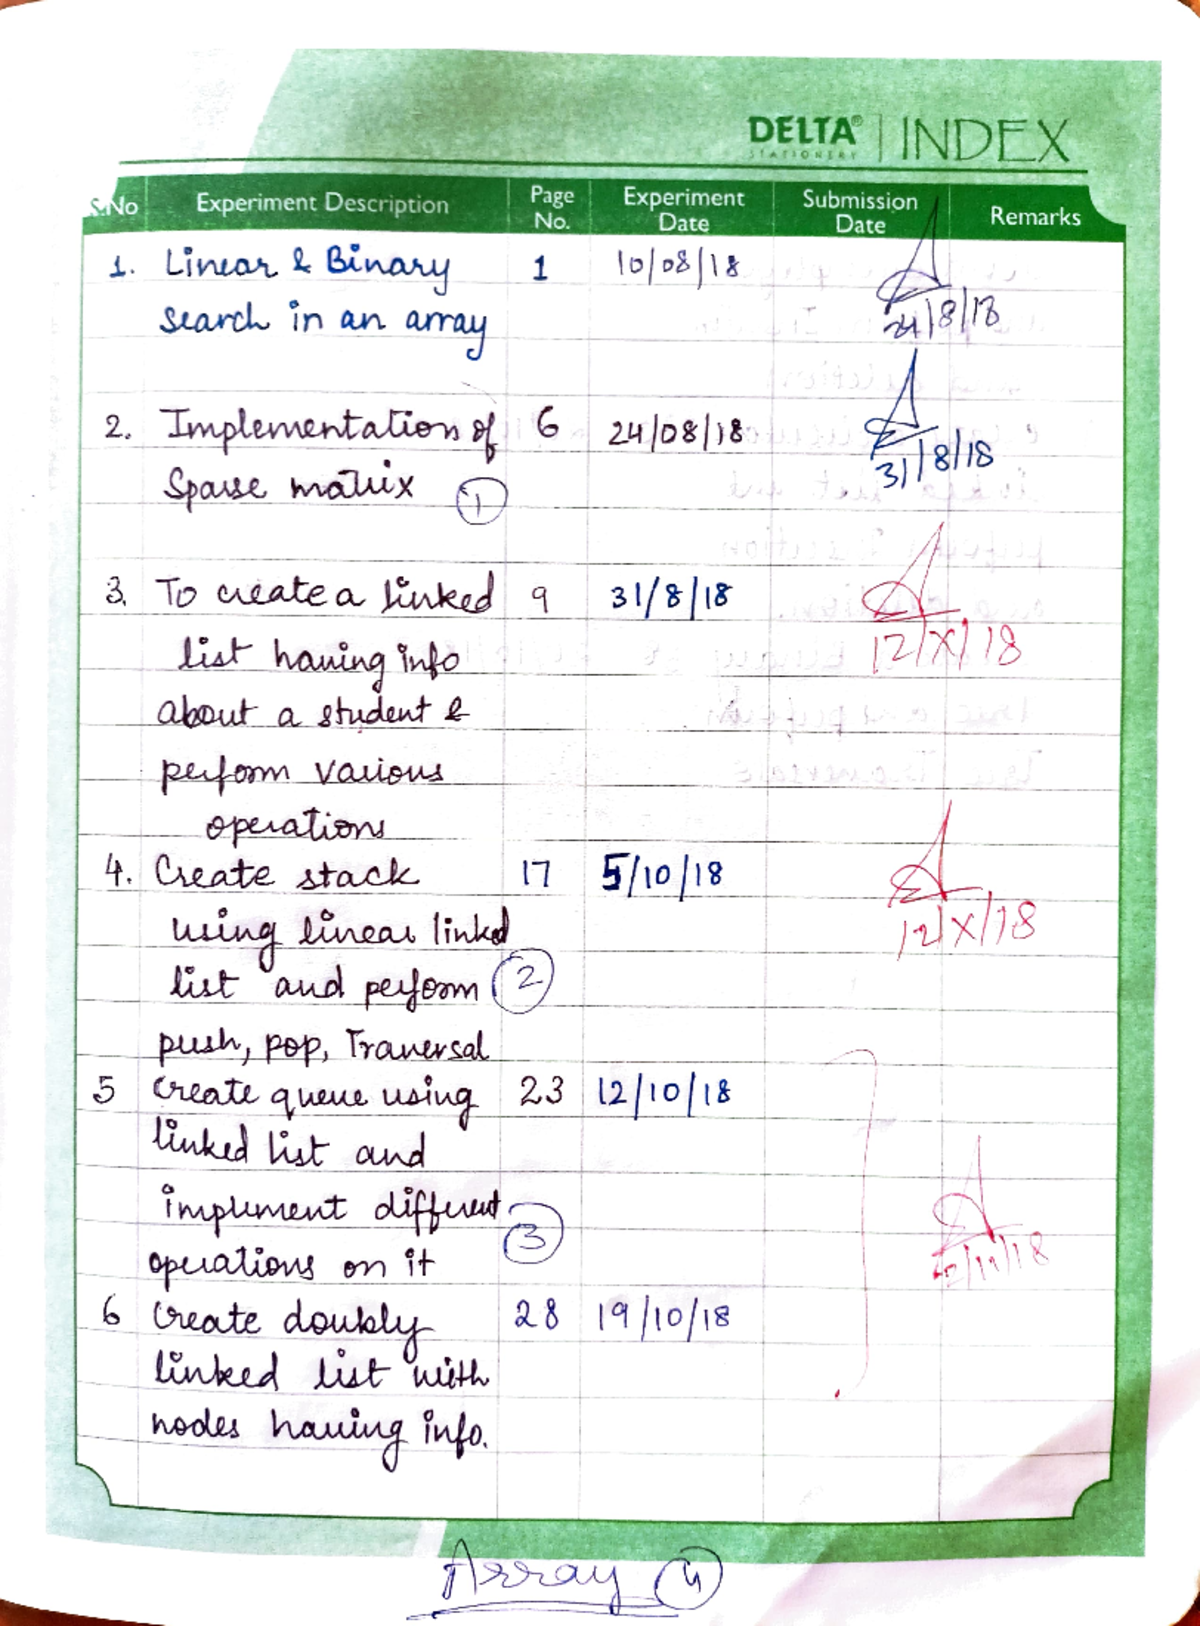 DELTA® | INDEX
STATIONERY
S.No Experiment Description Page No. Experiment Date Submission Date Remarks
1. Linear & Binary 1 10/08/18
search in an array 24/8/18
2. Implementation of 6 24/08/18
Sparse matrix 1 31/8/18
3. To create a linked 9 31/8/18
list having info 12/X/18
about a student &
perform various
operations
4. Create stack 17 5/10/18
using linear linked 12/X/18
list and perform 2
push, pop, Traversal
5 Create queue using 23 12/10/18
linked list and
implement different
operations on it 3 2/11/18
6 Create doubly 28 19/10/18
linked list with
nodes having info.
Array 4